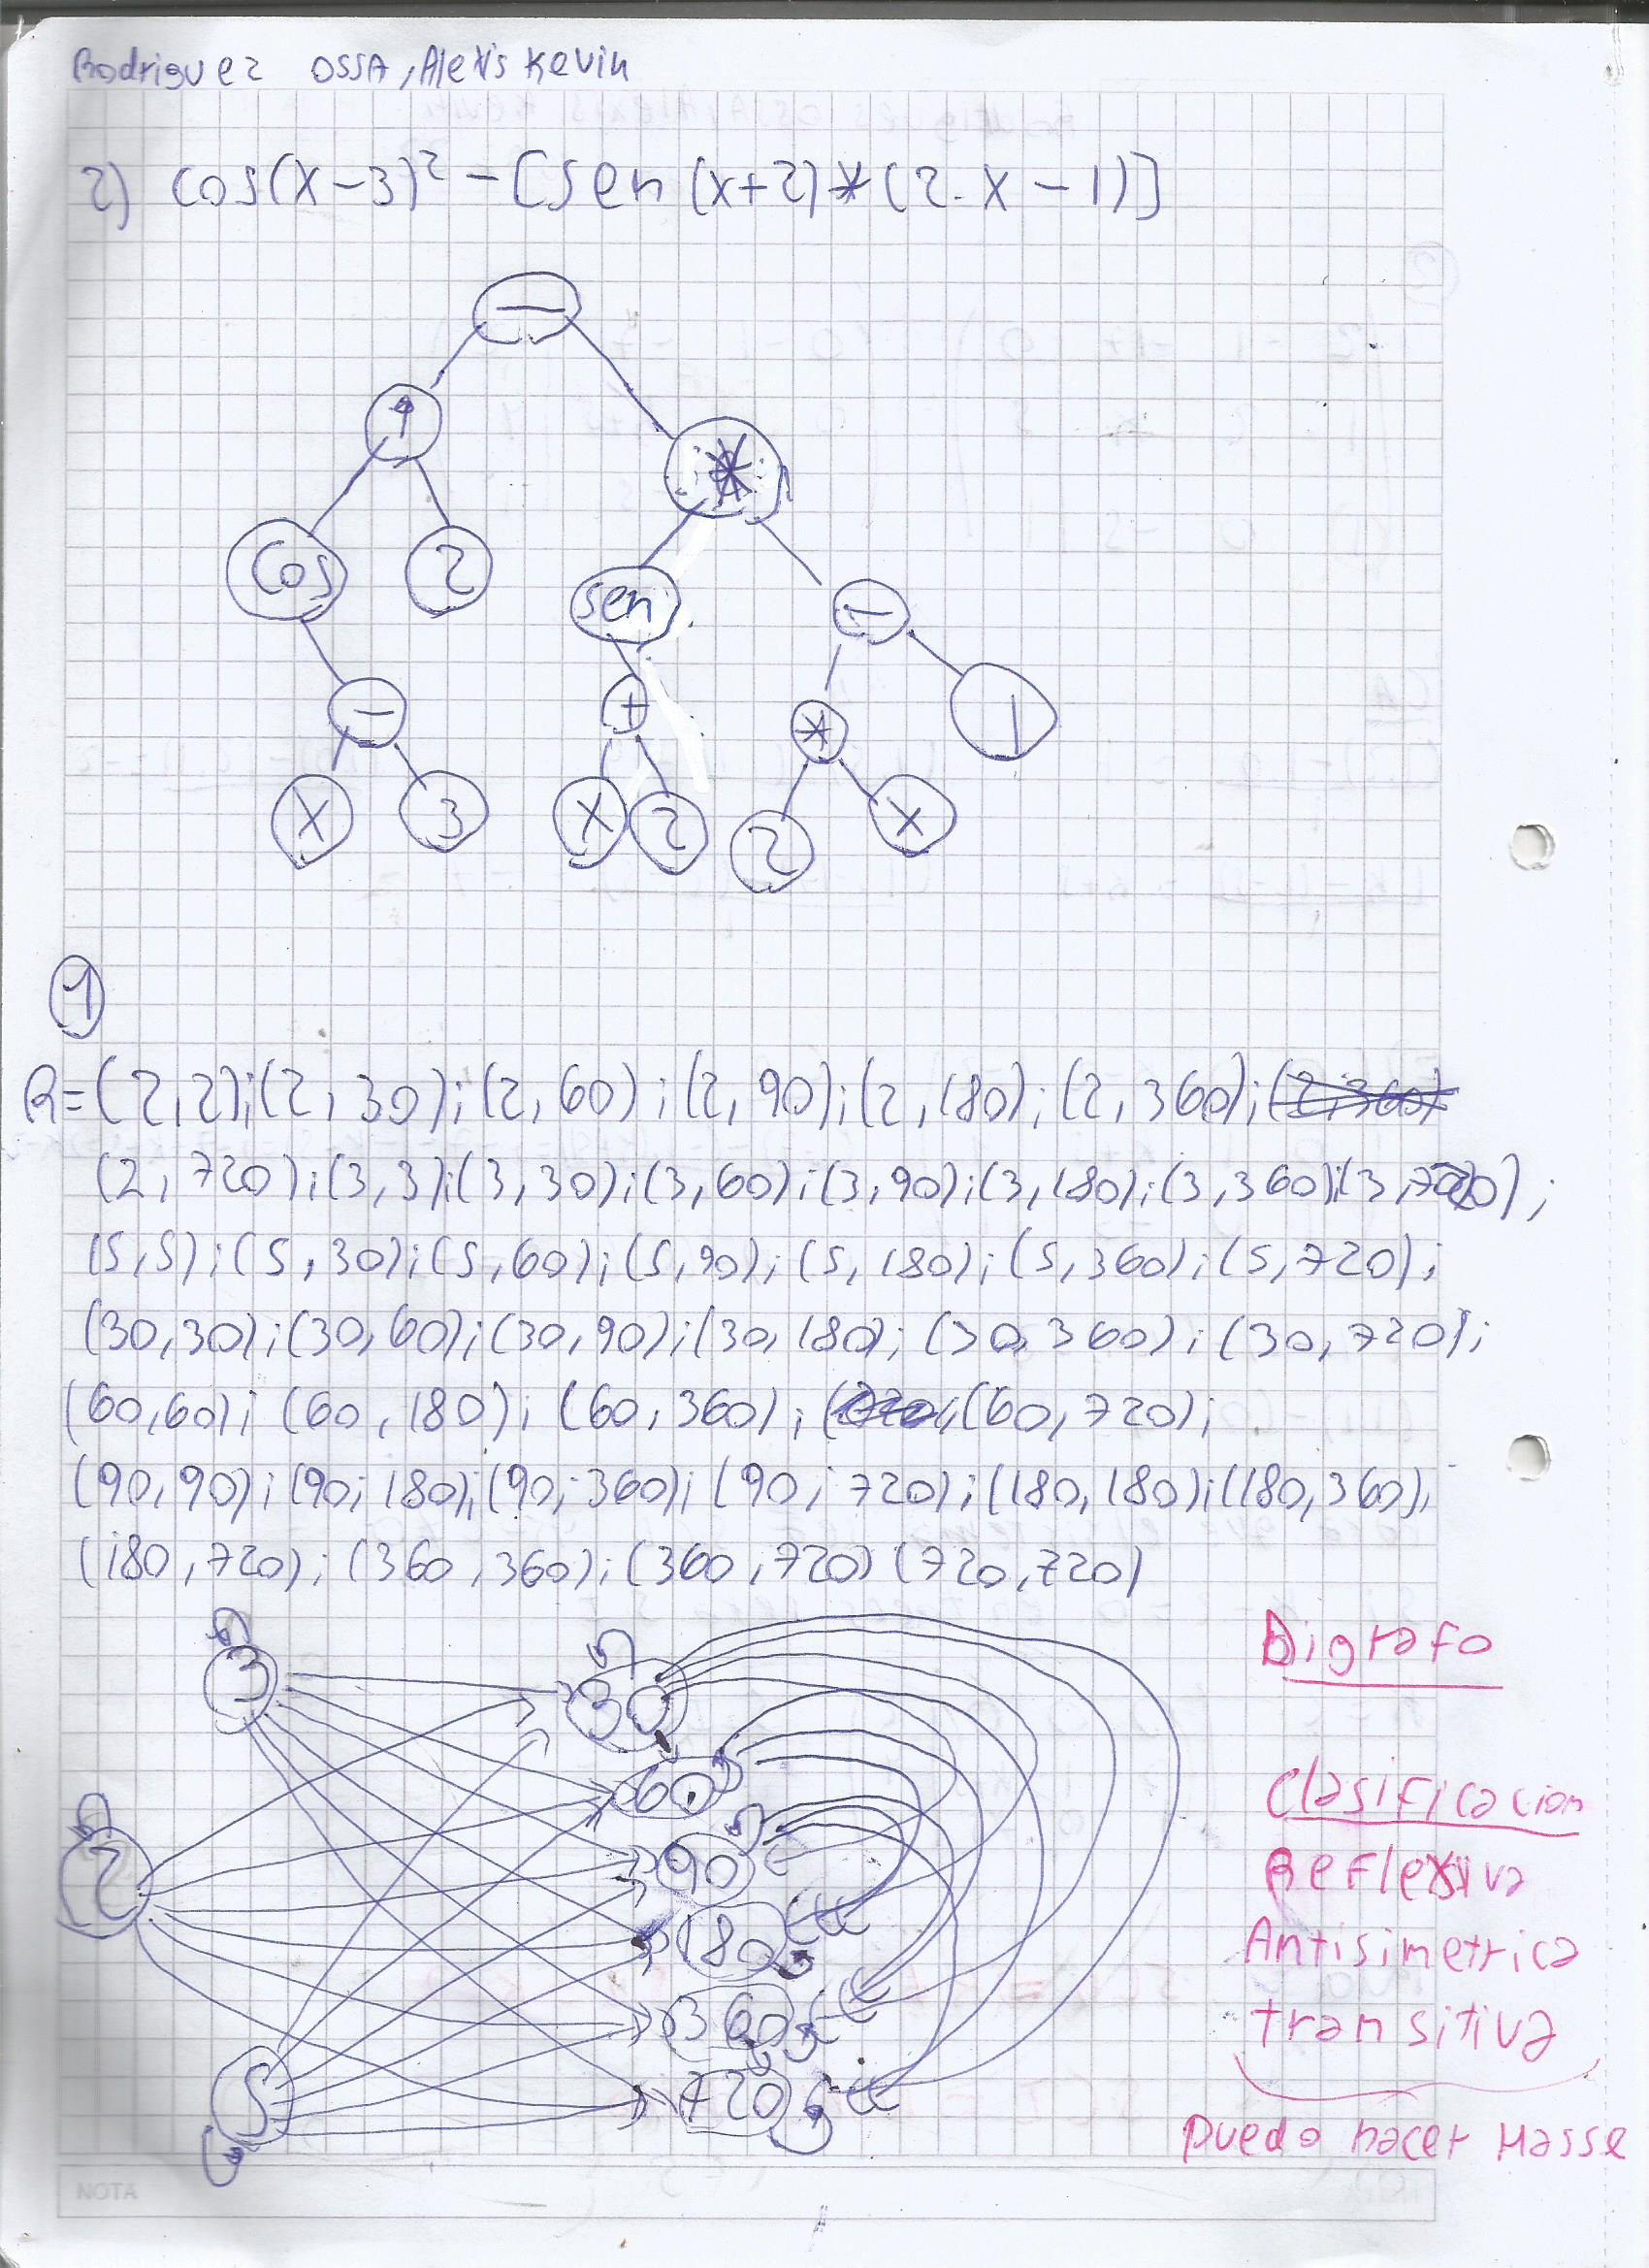 Rodriguez OSSA, Alexis Kevin
2) cos(x-3)² - [sen (x+2)*(2.x-1)]
—
↑
*
Cos 2 sen —
— + * 1
x 3 x 2 2 x
1
R=(2,2);(2,30);(2,60);(2,90);(2,180);(2,360);(2,360)
(2,720);(3,3);(3,30);(3,60);(3,90);(3,180);(3,360);(3,720);
(5,5);(5,30);(5,60);(5,90);(5,180);(5,360);(5,720);
(30,30);(30,60);(30,90);(30,180);(30,360);(30,720);
(60,60);(60,180);(60,360);(60,720);
(90,90);(90;180);(90;360);(90;720);(180,180);(180,360);
(180,720);(360,360);(360,720)(720,720)
Digrafo
3 30
60
Clasificacion
2 90
Reflexiva
180
Antisimetrica
360
transitiva
5 720
puedo hacer Hasse
NOTA